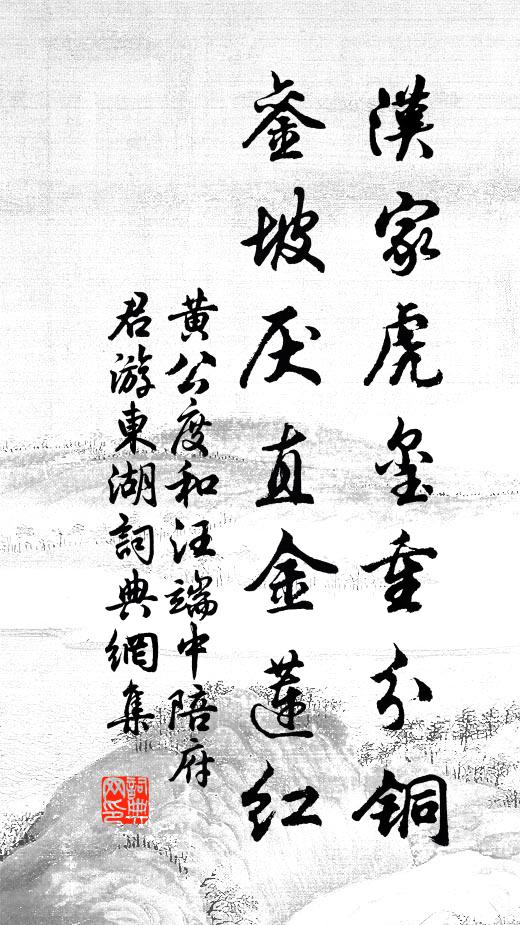 漢家虎璽重分铜
銮坡厌直金莲红
黄公度和汪端中陪府
君游東湖詞典網集
詞典
网印